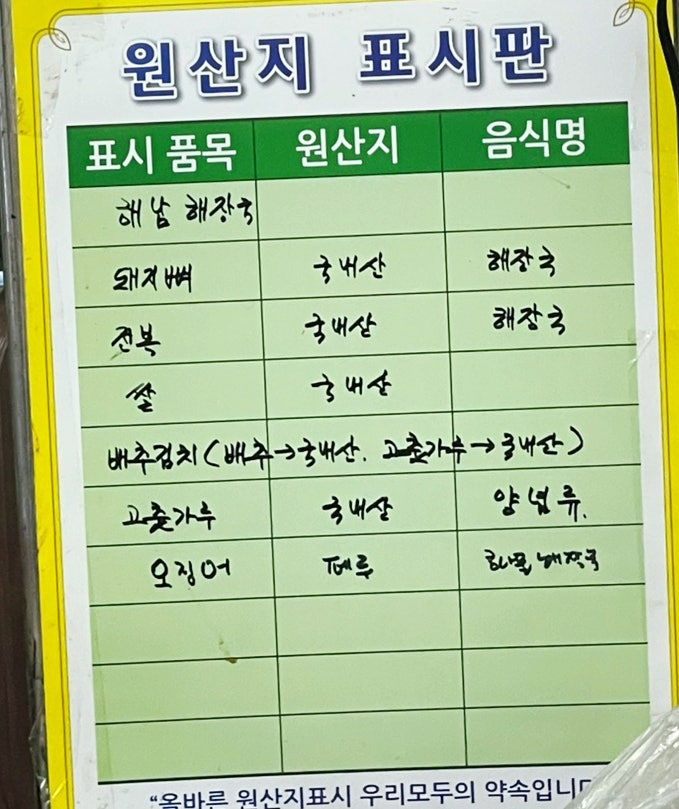 원산지 표시판
표시 품목 원산지 음식명
해남 해장국
돼지뼈 국내산 해장국
전복 국내산 해장국
쌀 국내산
배추김치(배추→국내산. 고춧가루→국내산)
고춧가루 국내산 양념류.
오징어 페루 콩나물해장국
“올바른 원산지표시 우리모두의 약속입니다